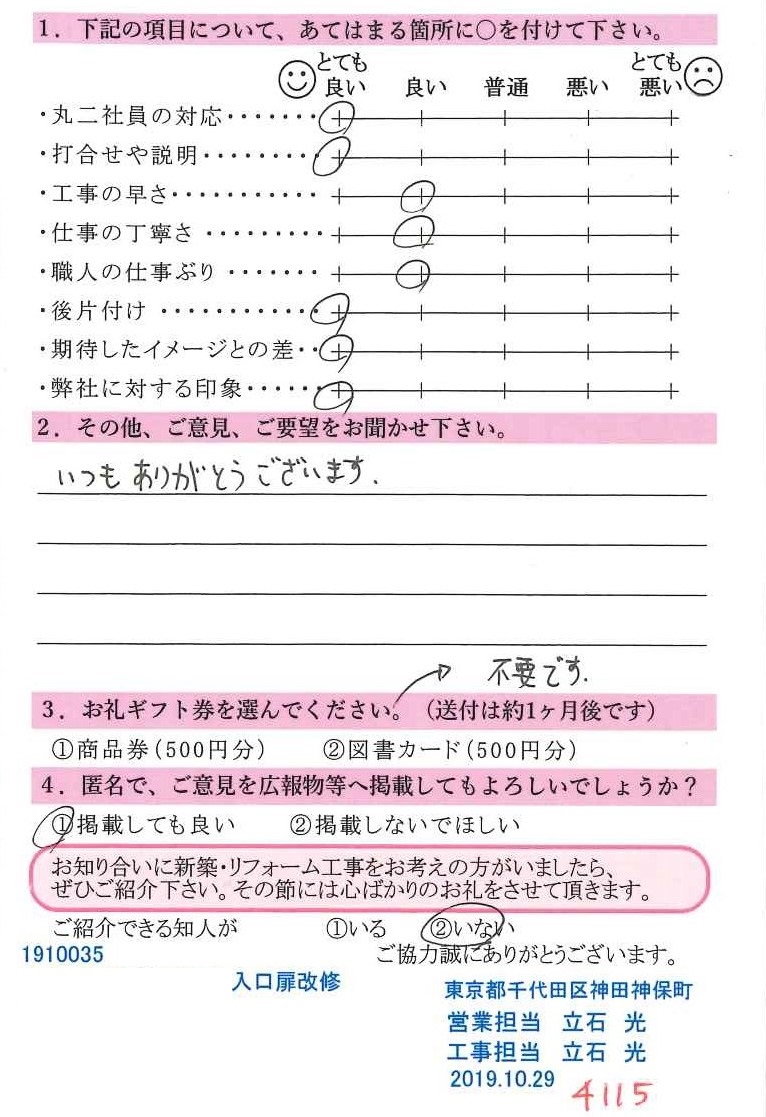 1. 下記の項目について、あてはまる箇所に○を付けて下さい。
とても良い 良い 普通 悪い とても悪い
・丸二社員の対応・・・・・・・
・打合せや説明・・・・・・・・・
・工事の早さ・・・・・・・・・・・
・仕事の丁寧さ・・・・・・・・・
・職人の仕事ぶり・・・・・・・
・後片付け・・・・・・・・・・・・
・期待したイメージとの差・・
・弊社に対する印象・・・・・・
2. その他、ご意見、ご要望をお聞かせ下さい。
いつもありがとうございます.
不要です.
3. お礼ギフト券を選んでください。(送付は約1ヶ月後です)
①商品券(500円分) ②図書カード(500円分)
4. 匿名で、ご意見を広報物等へ掲載してもよろしいでしょうか？
①掲載しても良い ②掲載しないでほしい
お知り合いに新築・リフォーム工事をお考えの方がいましたら、
ぜひご紹介下さい。その節には心ばかりのお礼をさせて頂きます。
ご紹介できる知人が ①いる ②いない
1910035 ご協力誠にありがとうございます。
入口扉改修
東京都千代田区神田神保町
営業担当 立石 光
工事担当 立石 光
2019.10.29
4115